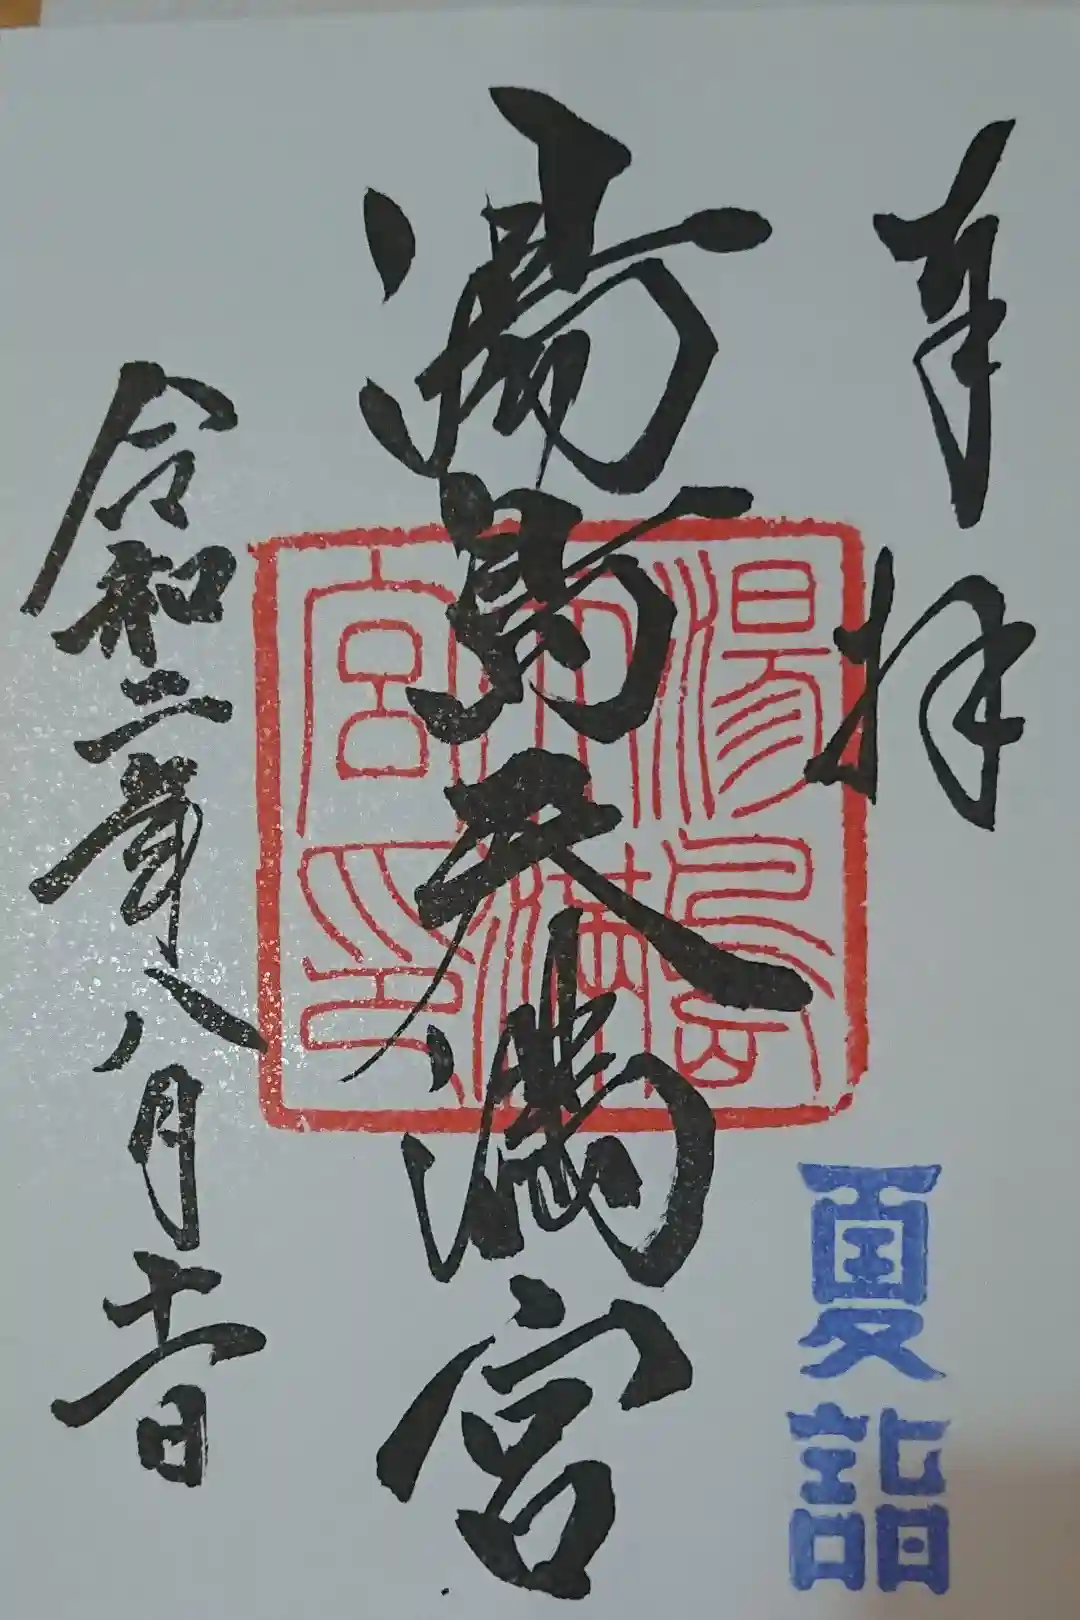 奉拝
夏詣
湯島天満宮
湯島
天満
宮印
令和二年八月十一日